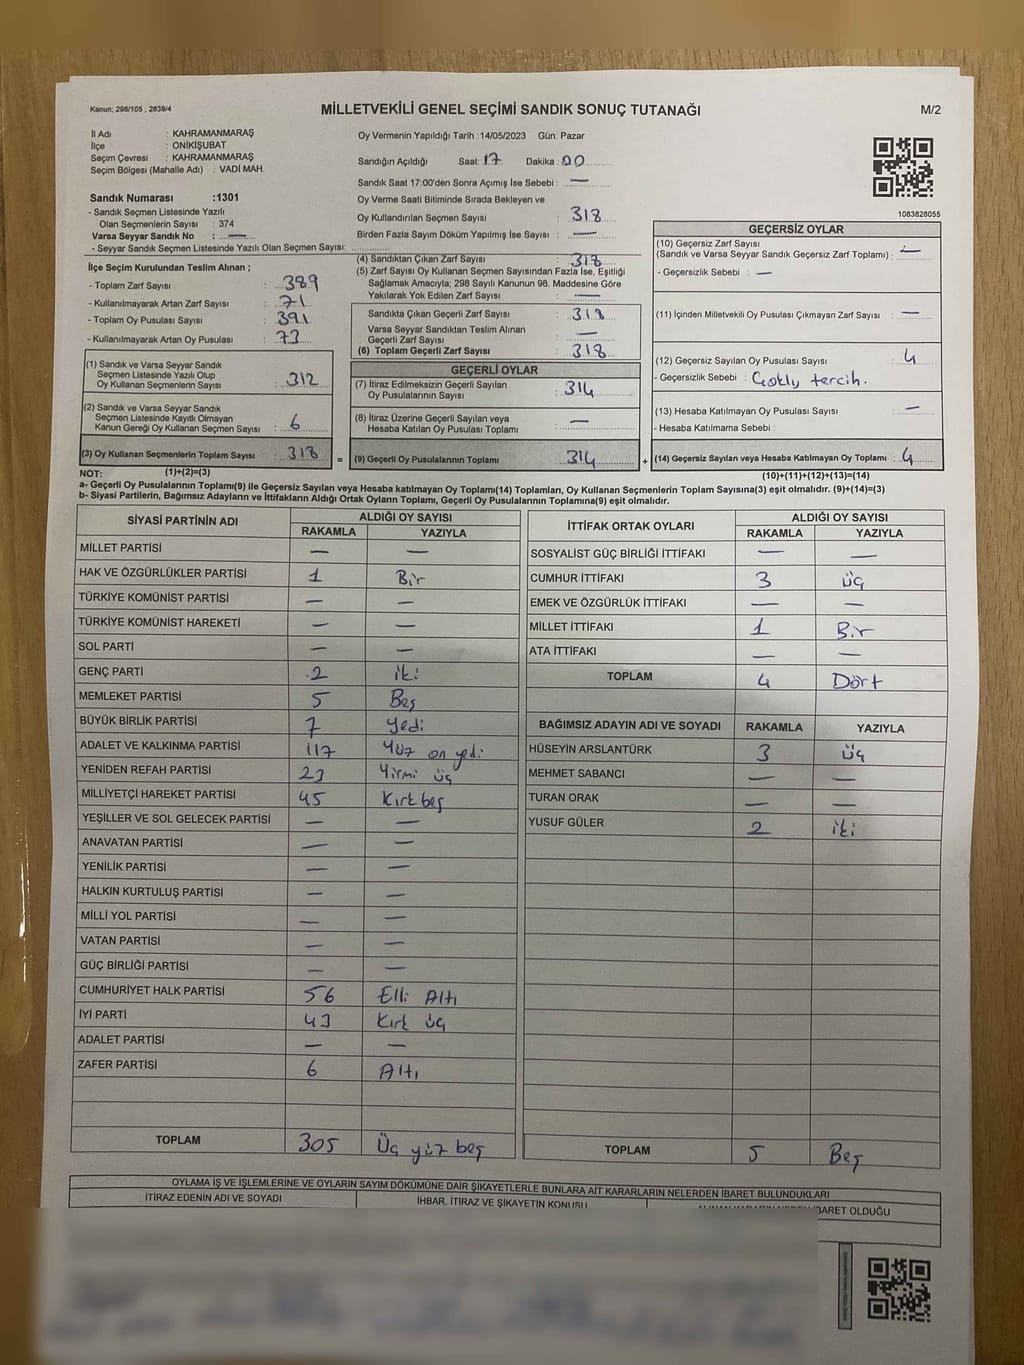 Kanun; 298/105 , 2839/4
MİLLETVEKİLİ GENEL SEÇİMİ SANDIK SONUÇ TUTANAĞI
M/2
İl Adı : KAHRAMANMARAŞ
İlçe : ONİKİŞUBAT
Seçim Çevresi : KAHRAMANMARAŞ
Seçim Bölgesi (Mahalle Adı) : VADİ MAH.
Sandık Numarası :1301
- Sandık Seçmen Listesinde Yazılı
Olan Seçmenlerin Sayısı : 374
Varsa Seyyar Sandık No : —
- Seyyar Sandık Seçmen Listesinde Yazılı Olan Seçmen Sayısı:
Oy Vermenin Yapıldığı Tarih :14/05/2023 Gün: Pazar
Sandığın Açıldığı Saat: 17 Dakika : 00
Sandık Saat 17:00'den Sonra Açımış İse Sebebi : —
Oy Verme Saati Bitiminde Sırada Bekleyen ve
Oy Kullandırılan Seçmen Sayısı : 318
Birden Fazla Sayım Döküm Yapılmış İse Sayısı : —
1083828055
İlçe Seçim Kurulundan Teslim Alınan ;
- Toplam Zarf Sayısı : 389
- Kullanılmayarak Artan Zarf Sayısı : 71
- Toplam Oy Pusulası Sayısı : 391
- Kullanılmayarak Artan Oy Pusulası : 73
(1) Sandık ve Varsa Seyyar Sandık
Seçmen Listesinde Yazılı Olup
Oy Kullanan Seçmenlerin Sayısı : 312
(2) Sandık ve Varsa Seyyar Sandık
Seçmen Listesinde Kayıtlı Olmayan
Kanun Gereği Oy Kullanan Seçmen Sayısı : 6
(3) Oy Kullanan Seçmenlerin Toplam Sayısı : 318
(1)+(2)=(3)
(4) Sandıktan Çıkan Zarf Sayısı : 318
(5) Zarf Sayısı Oy Kullanan Seçmen Sayısından Fazla İse, Eşitliği
Sağlamak Amacıyla; 298 Sayılı Kanunun 98. Maddesine Göre
Yakılarak Yok Edilen Zarf Sayısı : —
Sandıkta Çıkan Geçerli Zarf Sayısı : 318
Varsa Seyyar Sandıktan Teslim Alınan
Geçerli Zarf Sayısı : —
(6) Toplam Geçerli Zarf Sayısı : 318
GEÇERLİ OYLAR
(7) İtiraz Edilmeksizin Geçerli Sayılan
Oy Pusulalarının Sayısı : 314
(8) İtiraz Üzerine Geçerli Sayılan veya
Hesaba Katılan Oy Pusulası Toplamı : —
= (9) Geçerli Oy Pusulalarının Toplamı : 314 +
GEÇERSİZ OYLAR
(10) Geçersiz Zarf Sayısı
(Sandık ve Varsa Seyyar Sandık Geçersiz Zarf Toplamı) : —
- Geçersizlik Sebebi : —
(11) İçinden Milletvekili Oy Pusulası Çıkmayan Zarf Sayısı : —
(12) Geçersiz Sayılan Oy Pusulası Sayısı : 4
- Geçersizlik Sebebi : Çoklu tercih.
(13) Hesaba Katılmayan Oy Pusulası Sayısı : —
- Hesaba Katılmama Sebebi :
(14) Geçersiz Sayılan veya Hesaba Katılmayan Oy Toplamı : 4
(10)+(11)+(12)+(13)=(14)
NOT:
a- Geçerli Oy Pusulalarının Toplamı(9) ile Geçersiz Sayılan veya Hesaba katılmayan Oy Toplamı(14) Toplamları, Oy Kullanan Seçmenlerin Toplam Sayısına(3) eşit olmalıdır. (9)+(14)=(3)
b- Siyasi Partilerin, Bağımsız Adayların ve İttifakların Aldığı Ortak Oyların Toplamı, Geçerli Oy Pusulalarının Toplamına(9) eşit olmalıdır.
SİYASİ PARTİNİN ADI ALDIĞI OY SAYISI
RAKAMLA YAZIYLA
MİLLET PARTİSİ — —
HAK VE ÖZGÜRLÜKLER PARTİSİ 1 Bir
TÜRKİYE KOMÜNİST PARTİSİ — —
TÜRKİYE KOMÜNİST HAREKETİ — —
SOL PARTİ — —
GENÇ PARTİ 2 iki
MEMLEKET PARTİSİ 5 Beş
BÜYÜK BİRLİK PARTİSİ 7 yedi
ADALET VE KALKINMA PARTİSİ 117 yüz on yedi
YENİDEN REFAH PARTİSİ 23 Yirmi üç
MİLLİYETÇİ HAREKET PARTİSİ 45 Kırk beş
YEŞİLLER VE SOL GELECEK PARTİSİ — —
ANAVATAN PARTİSİ — —
YENİLİK PARTİSİ — —
HALKIN KURTULUŞ PARTİSİ — —
MİLLİ YOL PARTİSİ — —
VATAN PARTİSİ — —
GÜÇ BİRLİĞİ PARTİSİ — —
CUMHURİYET HALK PARTİSİ 56 Elli Altı
İYİ PARTİ 43 Kırk üç
ADALET PARTİSİ — —
ZAFER PARTİSİ 6 Altı
TOPLAM 305 Üç yüz beş
İTTİFAK ORTAK OYLARI ALDIĞI OY SAYISI
RAKAMLA YAZIYLA
SOSYALİST GÜÇ BİRLİĞİ İTTİFAKI — —
CUMHUR İTTİFAKI 3 üç
EMEK VE ÖZGÜRLÜK İTTİFAKI — —
MİLLET İTTİFAKI 1 Bir
ATA İTTİFAKI — —
TOPLAM 4 Dört
BAĞIMSIZ ADAYIN ADI VE SOYADI RAKAMLA YAZIYLA
HÜSEYİN ARSLANTÜRK 3 üç
MEHMET SABANCI — —
TURAN ORAK — —
YUSUF GÜLER 2 iki
TOPLAM 5 Beş
OYLAMA İŞ VE İŞLEMLERİNE VE OYLARIN SAYIM DÖKÜMÜNE DAİR ŞİKAYETLERLE BUNLARA AİT KARARLARIN NELERDEN İBARET BULUNDUKLARI
İTİRAZ EDENİN ADI VE SOYADI İHBAR, İTİRAZ VE ŞİKAYETİN KONUSU İBARET OLDUĞU